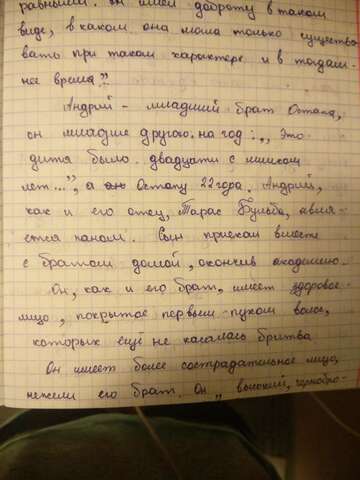 равными. Он имел доброту в таком
виде, в каком она могла только существо
вать при таком характере и в тогдаш-
нее время."
Андрий - младший брат Остапа,
он младше другого на год: „Это
дитя было двадцати с лишком
лет...", а Остапу 22 года. Андрий,
как и его отец, Тарас Бульба, явля-
ется паном. Сын приехал вместе
с братом домой, окончив академию.
Он, как и его брат, имеет здоровое
лицо, покрытое первым пухом волос,
которых ещё не касалась бритва
Он имеет более сострадательное лицо,
нежели его брат. Он „высокий, чернобро-